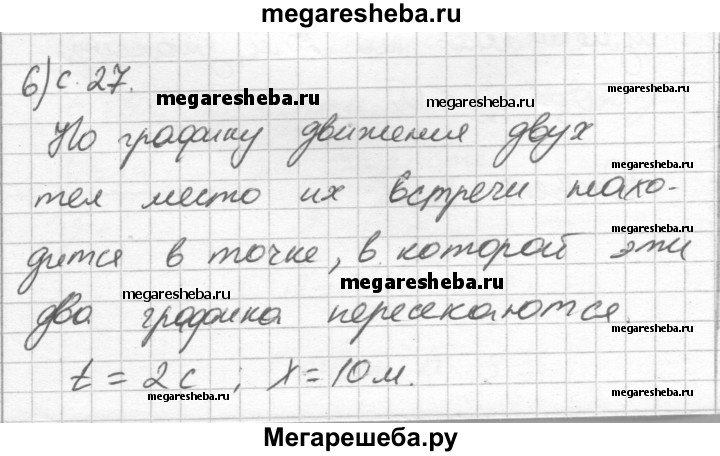 megaresheba.ru
6) с. 27.
megaresheba.ru
megaresheba.ru
megaresheba.ru
По графику движения двух
megaresheba.ru
тел место их встречи нахо-
megaresheba.ru
дится в точке, в которой эти
megaresheba.ru
megaresheba.ru
два графика пересекаются.
megaresheba.ru
t = 2 с ; X = 10 м.
megaresheba.ru
megaresheba.ru
Мегарешеба.ру